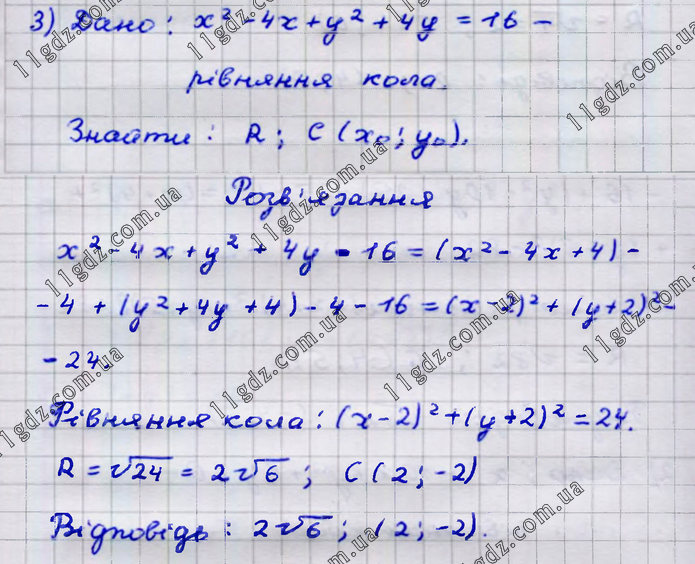 3) Дано: x² - 4x + y² + 4y = 16 -
рівняння кола.
Знайти: R; C (x₀; y₀).
Розв'язання
x² - 4x + y² + 4y - 16 = (x² - 4x + 4) -
- 4 + (y² + 4y + 4) - 4 - 16 = (x - 2)² + (y + 2)² -
- 24.
Рівняння кола: (x - 2)² + (y + 2)² = 24.
R = √24 = 2√6; C (2; -2)
Відповідь: 2√6; (2; -2).
11gdz.com.ua
11gdz.com.ua
11gdz.com.ua
11gdz.com.ua
11gdz.com.ua
11gdz.com.ua
11gdz.com.ua
11gdz.com.ua
11gdz.com.ua
11gdz.com.ua
11gdz.com.ua
11gdz.com.ua